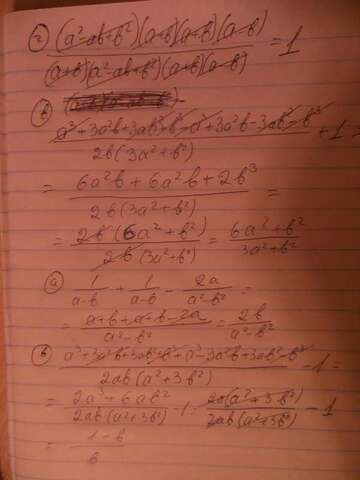 г) (a²-ab+b²)(a+b)(a+b)(a-b) / (a+b)(a²-ab+b²)(a+b)(a-b) = 1
б) a³+3a²b+3ab²+b³-a³+3a²b-3ab²+b³ / 2b(3a²+b²) + 1 =
= 6a²b+6a²b+2b³ / 2b(3a²+b²) =
= 2b(6a²+b²) / 2b(3a²+b²) = 6a²+b² / 3a²+b²
а) 1/a-b + 1/a-b - 2a/a²-b² =
= a+b+a+b-2a / a²-b² = 2b / a²-b²
в) a³+3a²b+3ab²+b³+a³-3a²b+3ab²-b³ / 2ab(a²+3b²) - 1 =
= 2a³+6ab² / 2ab(a²+3b²) - 1 = 2a(a²+3b²) / 2ab(a²+3b²) - 1
= 1-b / b